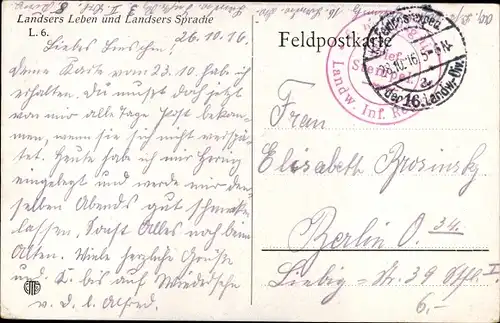 Landsers Leben und Landsers Sprache
L. 6.
26.10.16
Liebes Lieschen!
Deine Karte vom 23.10. habe ich
erhalten. Du mußt doch jetzt
von mir alle Tage Post bekom-
men, wenn sie sich nicht verspä-
tet. Heute habe ich mir Hering
eingelegt und werde mir den-
selben Abends gut schmecken
lassen. Sonst Alles noch beim
Alten. Viele herzliche Grüße
und K. bis auf Wiedersehn
v. d. l. Alfred.
Feldpostkarte
Landw. Inf. Re
Stempel
der 16. Landw. Div.
Frau
Elisabeth Brosinsky
Berlin O. 34.
Liebig-Str. 39
I
6.-